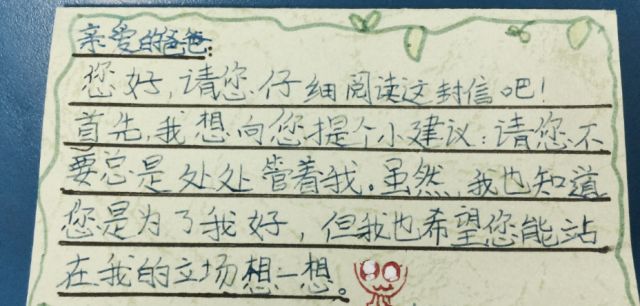 亲爱的爸爸:
您好,请您仔细阅读这封信吧!
首先,我想向您提个小建议:请您不
要总是处处管着我。虽然,我也知道
您是为了我好,但我也希望您能站
在我的立场想一想。